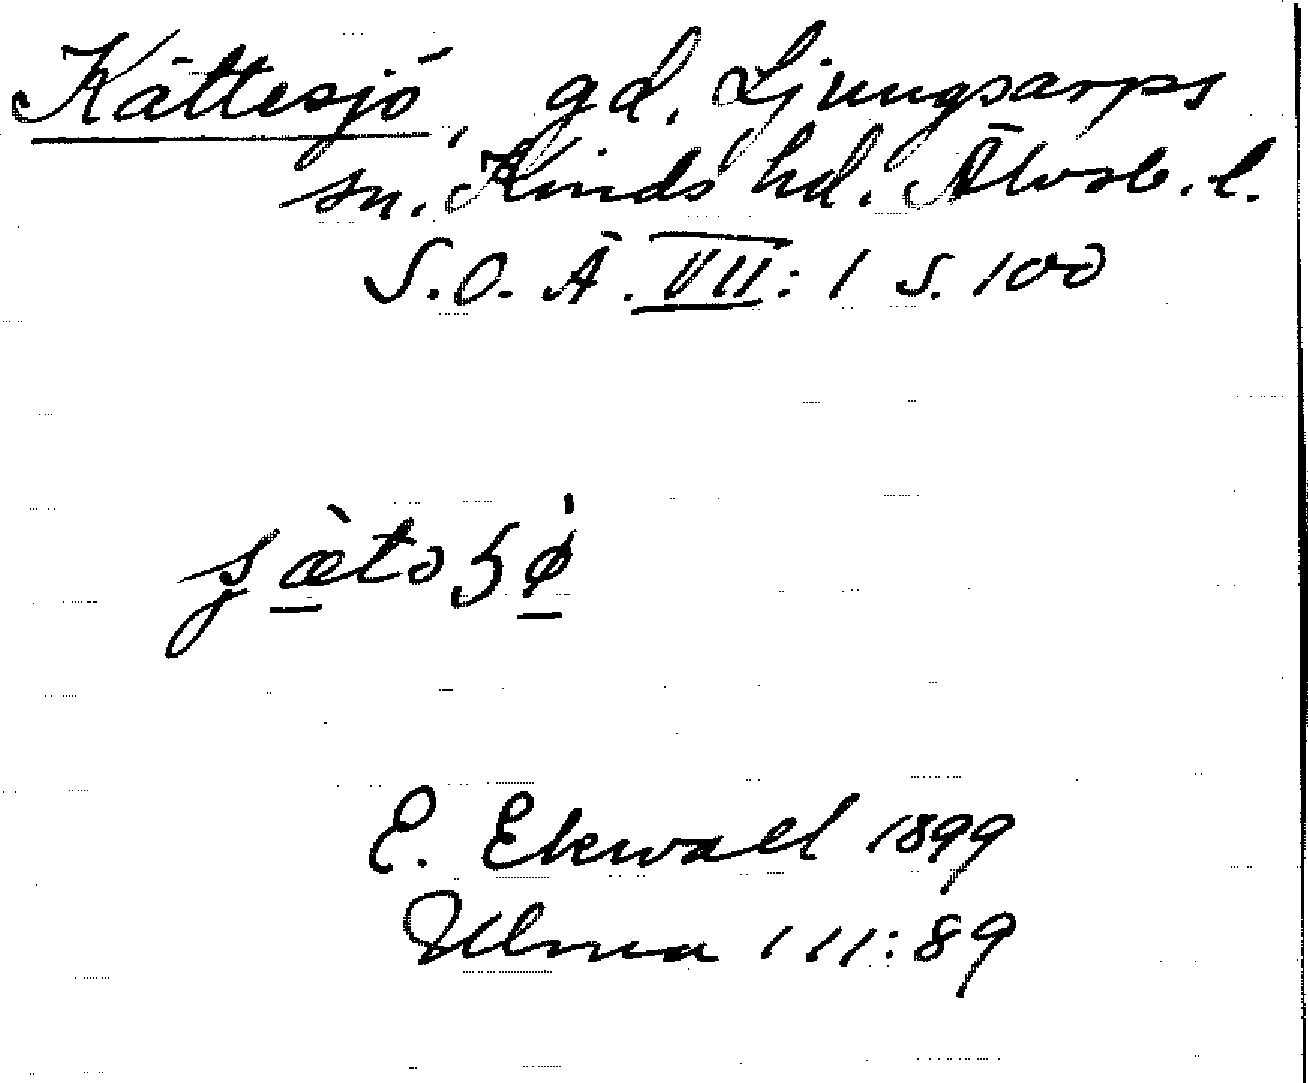 Kättesjö, gd. Ljungsarps
sn. Kinds hd. Älvsb. l.
S.O.Ä. VII: 1 s. 100
E. Ekwall 1899
Ulma 111:89